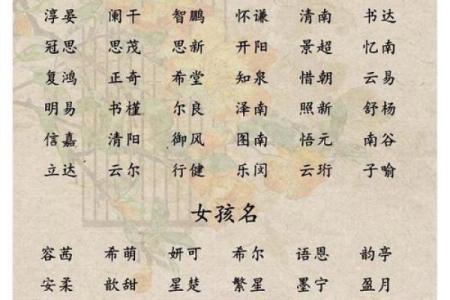 淳晏 阑干 智鹏 怀谦 清南 书达
冠思 思茂 思新 开阳 景超 忆南
复鸿 正奇 希堂 知泉 惜朝 云易
明易 书槿 尔良 泽南 照新 舒杨
信嘉 清阳 御风 图南 悟元 南谷
立达 云尔 行健 乐闵 云珩 子喻
女孩名
容茜 希萌 妍可 希尔 语恩 韵亭
安柔 歆甜 星楚 繁星 墨宁 盈月